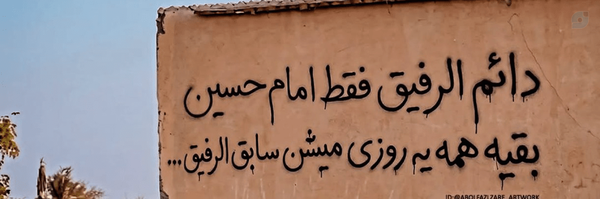 دائم الرفیق فقط امام حسین
بقیه همه یه روزی میشن سابق الرفیق...
ID:@ABOLFAZLZARE_ARTWORK